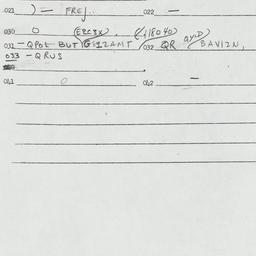 021 ) — FREJ.. 022 —
030 0 (E8C3X), (118040)
031 — QPOL BUT GIZZAMT 032 QR QYID BAVIZN,
033 — QRUS
041 0 042 —